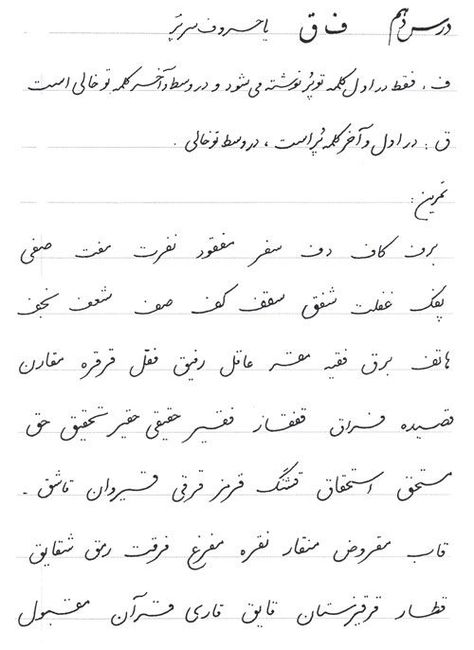 درس دهم ف ق یا حروف سرپُر
ف: فقط در اول کلمه توپُر نوشته می‌شود و در وسط و آخر کلمه توخالی است
ق: در اول و آخر کلمه پُر است، در وسط توخالی.
تمرین:
برف کاف دف سفر مفقود نفرت مفت صفی
پفک غفلت شفق سقف کف صف شعف نجف
هاتف برق فقیه عاقل رفیق قفل قرقره مقارن
قصیده فراق قفقاز فقیر حقیقی حقیر تحقیق حق
مستحق استحقاق قشنگ قرمز قرقی قیروان قاشق.
قاب مقروض منقار نقره مفرغ فرقت رمق شقایق
قطار قرقیزستان قایق قاری قرآن مقبول